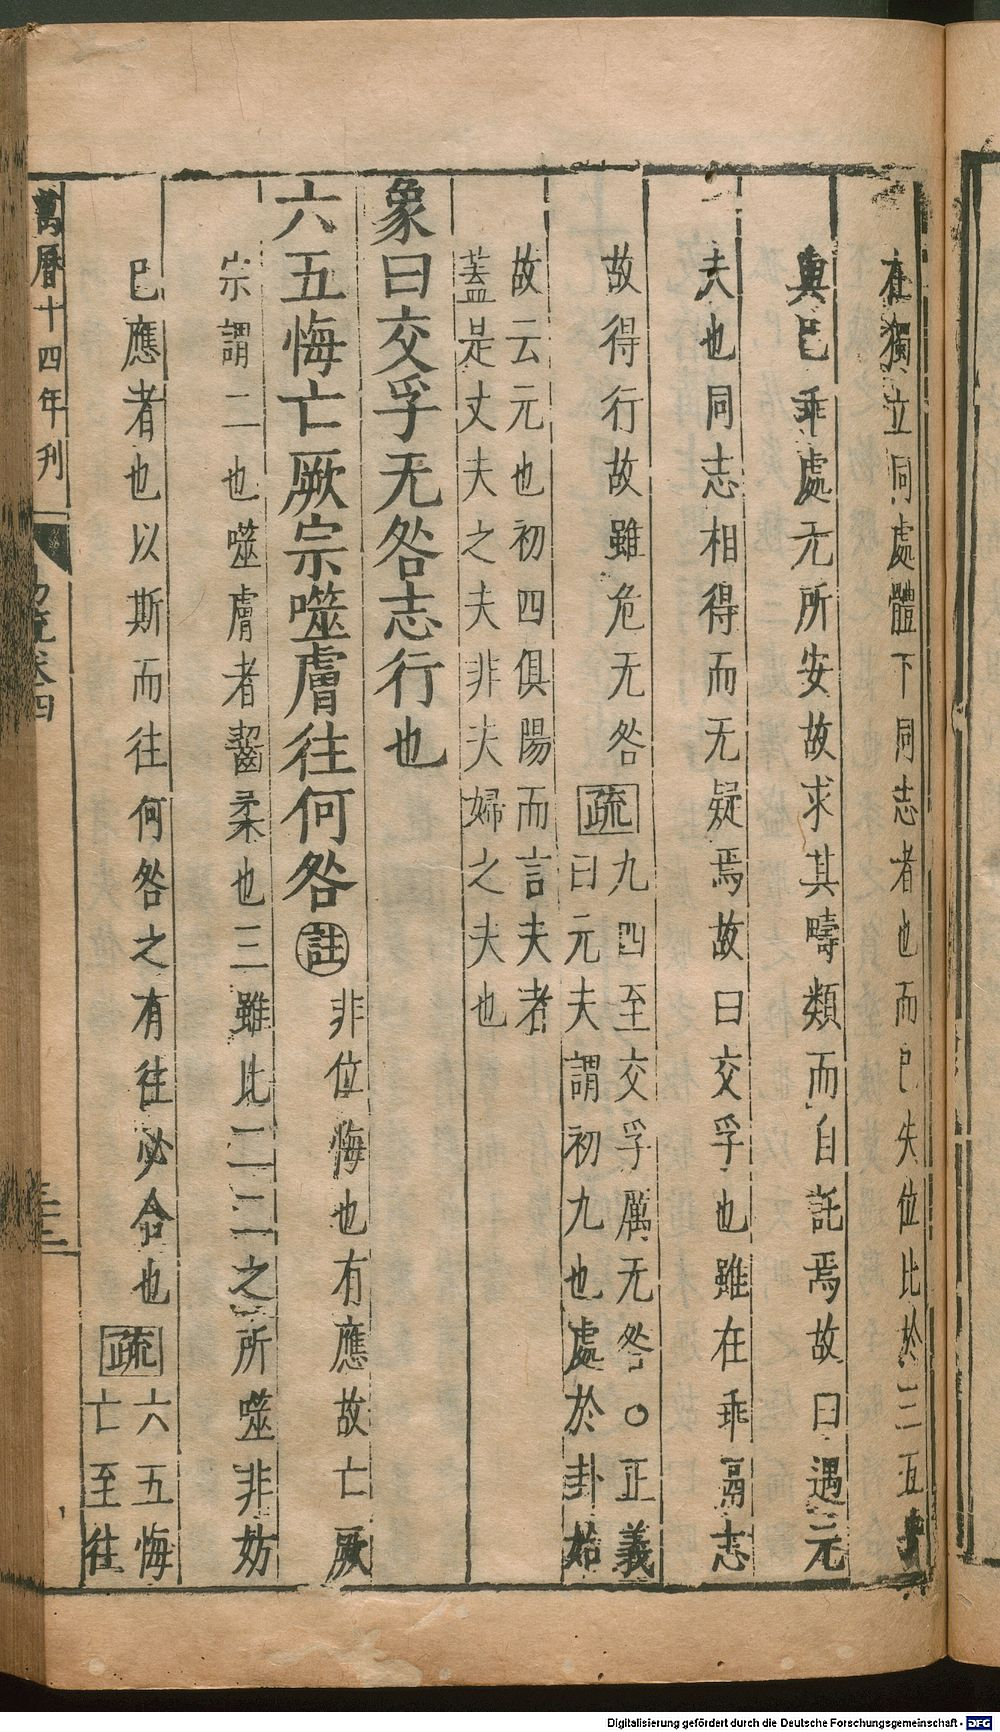 在獨立同處體下同志者也而已失位比於三五皆
與已乖處无所安故求其疇類而自託焉故曰遇元
夫也同志相得而无疑焉故曰交孚也雖在乖鬲志
故得行故雖危无咎疏九四至交孚厲无咎○正義
曰元夫謂初九也處於卦始
故云元也初四俱陽而言夫者
蓋是丈夫之夫非夫婦之夫也
象曰交孚无咎志行也
六五悔亡厥宗噬膚往何咎註非位悔也有應故亡厥
宗謂二也噬膚者齧柔也三雖比二二之所噬非妨
已應者也以斯而往何咎之有往必合也疏六五悔
亡至往
萬曆十四年刊
卷四